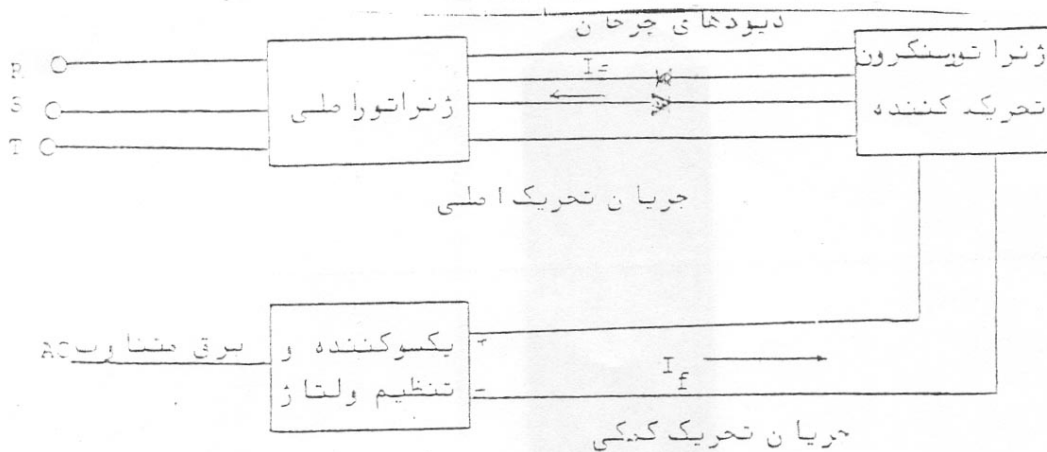 دیودهای چرخان
R
S
T
ژنراتور اصلی
I_f
ژنراتور سنکرون
تحریک کننده
جریان تحریک اصلی
برق متناوب AC
یکسو کننده و
تنظیم ولتاژ
+
-
I_f
جریان تحریک کمکی